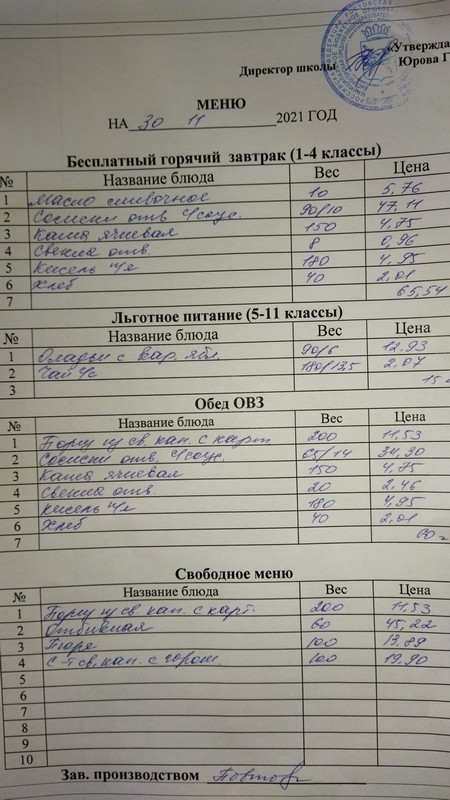 «Утвержда
Директор школы Юрова Г
МЕНЮ
НА 30 11 2021 ГОД
Бесплатный горячий завтрак (1-4 классы)
№ Название блюда Вес Цена
1 Масло сливочное 10 5,76
2 Сосиски отв с/соус. 90/10 47,11
3 Каша ячневая 150 4,75
4 Свекла отв. 8 0,96
5 Кисель п/я 180 4,95
6 Хлеб 40 2,01
7 65,54
Льготное питание (5-11 классы)
№ Название блюда Вес Цена
1 Оладьи с вар. ябл. 90/6 12,93
2 Чай с/с 180/13,5 2,07
3 15
Обед ОВЗ
№ Название блюда Вес Цена
1 Борщ из св. кап. с карт. 200 11,53
2 Сосиски отв. с/соус. 65/14 34,30
3 Каша ячневая 150 4,75
4 Свекла отв. 20 2,46
5 Кисель п/я 180 4,95
6 Хлеб 40 2,01
7 60
Свободное меню
№ Название блюда Вес Цена
1 Борщ из св. кап. с карт. 200 11,53
2 Отбивная 60 45,22
3 Пюре 100 13,89
4 С-т св. кап. с горош. 100 19,90
5
6
7
8
9
10
Зав. производством